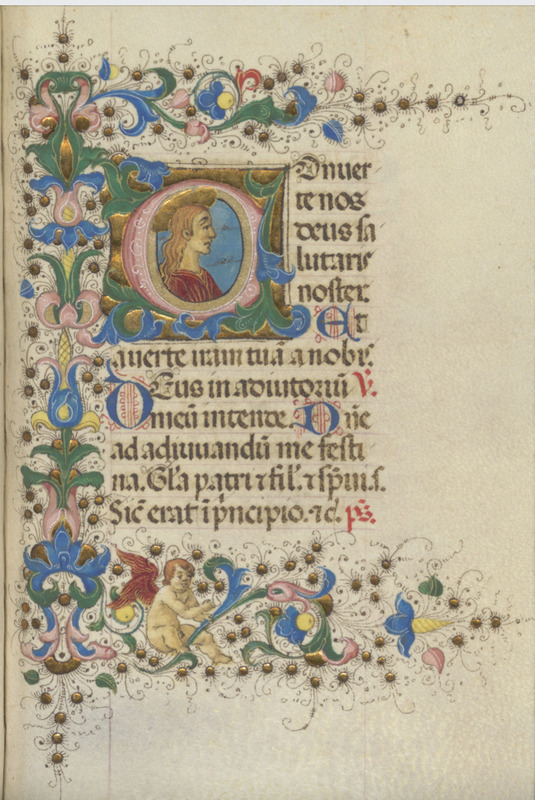 COnuer
te nos
deus sa
lutaris
noster.
Et
auerte iram tuā a nobis.
DEus in adiutoriū V̄.
meū intende. Dñe
ad adiuuandū me festi
na. Gl̄a patri ⁊ fil̄. ⁊ sp̄ui.s.
Sic̄ erat ī p̄ncipio. ⁊c̄. ps̄.